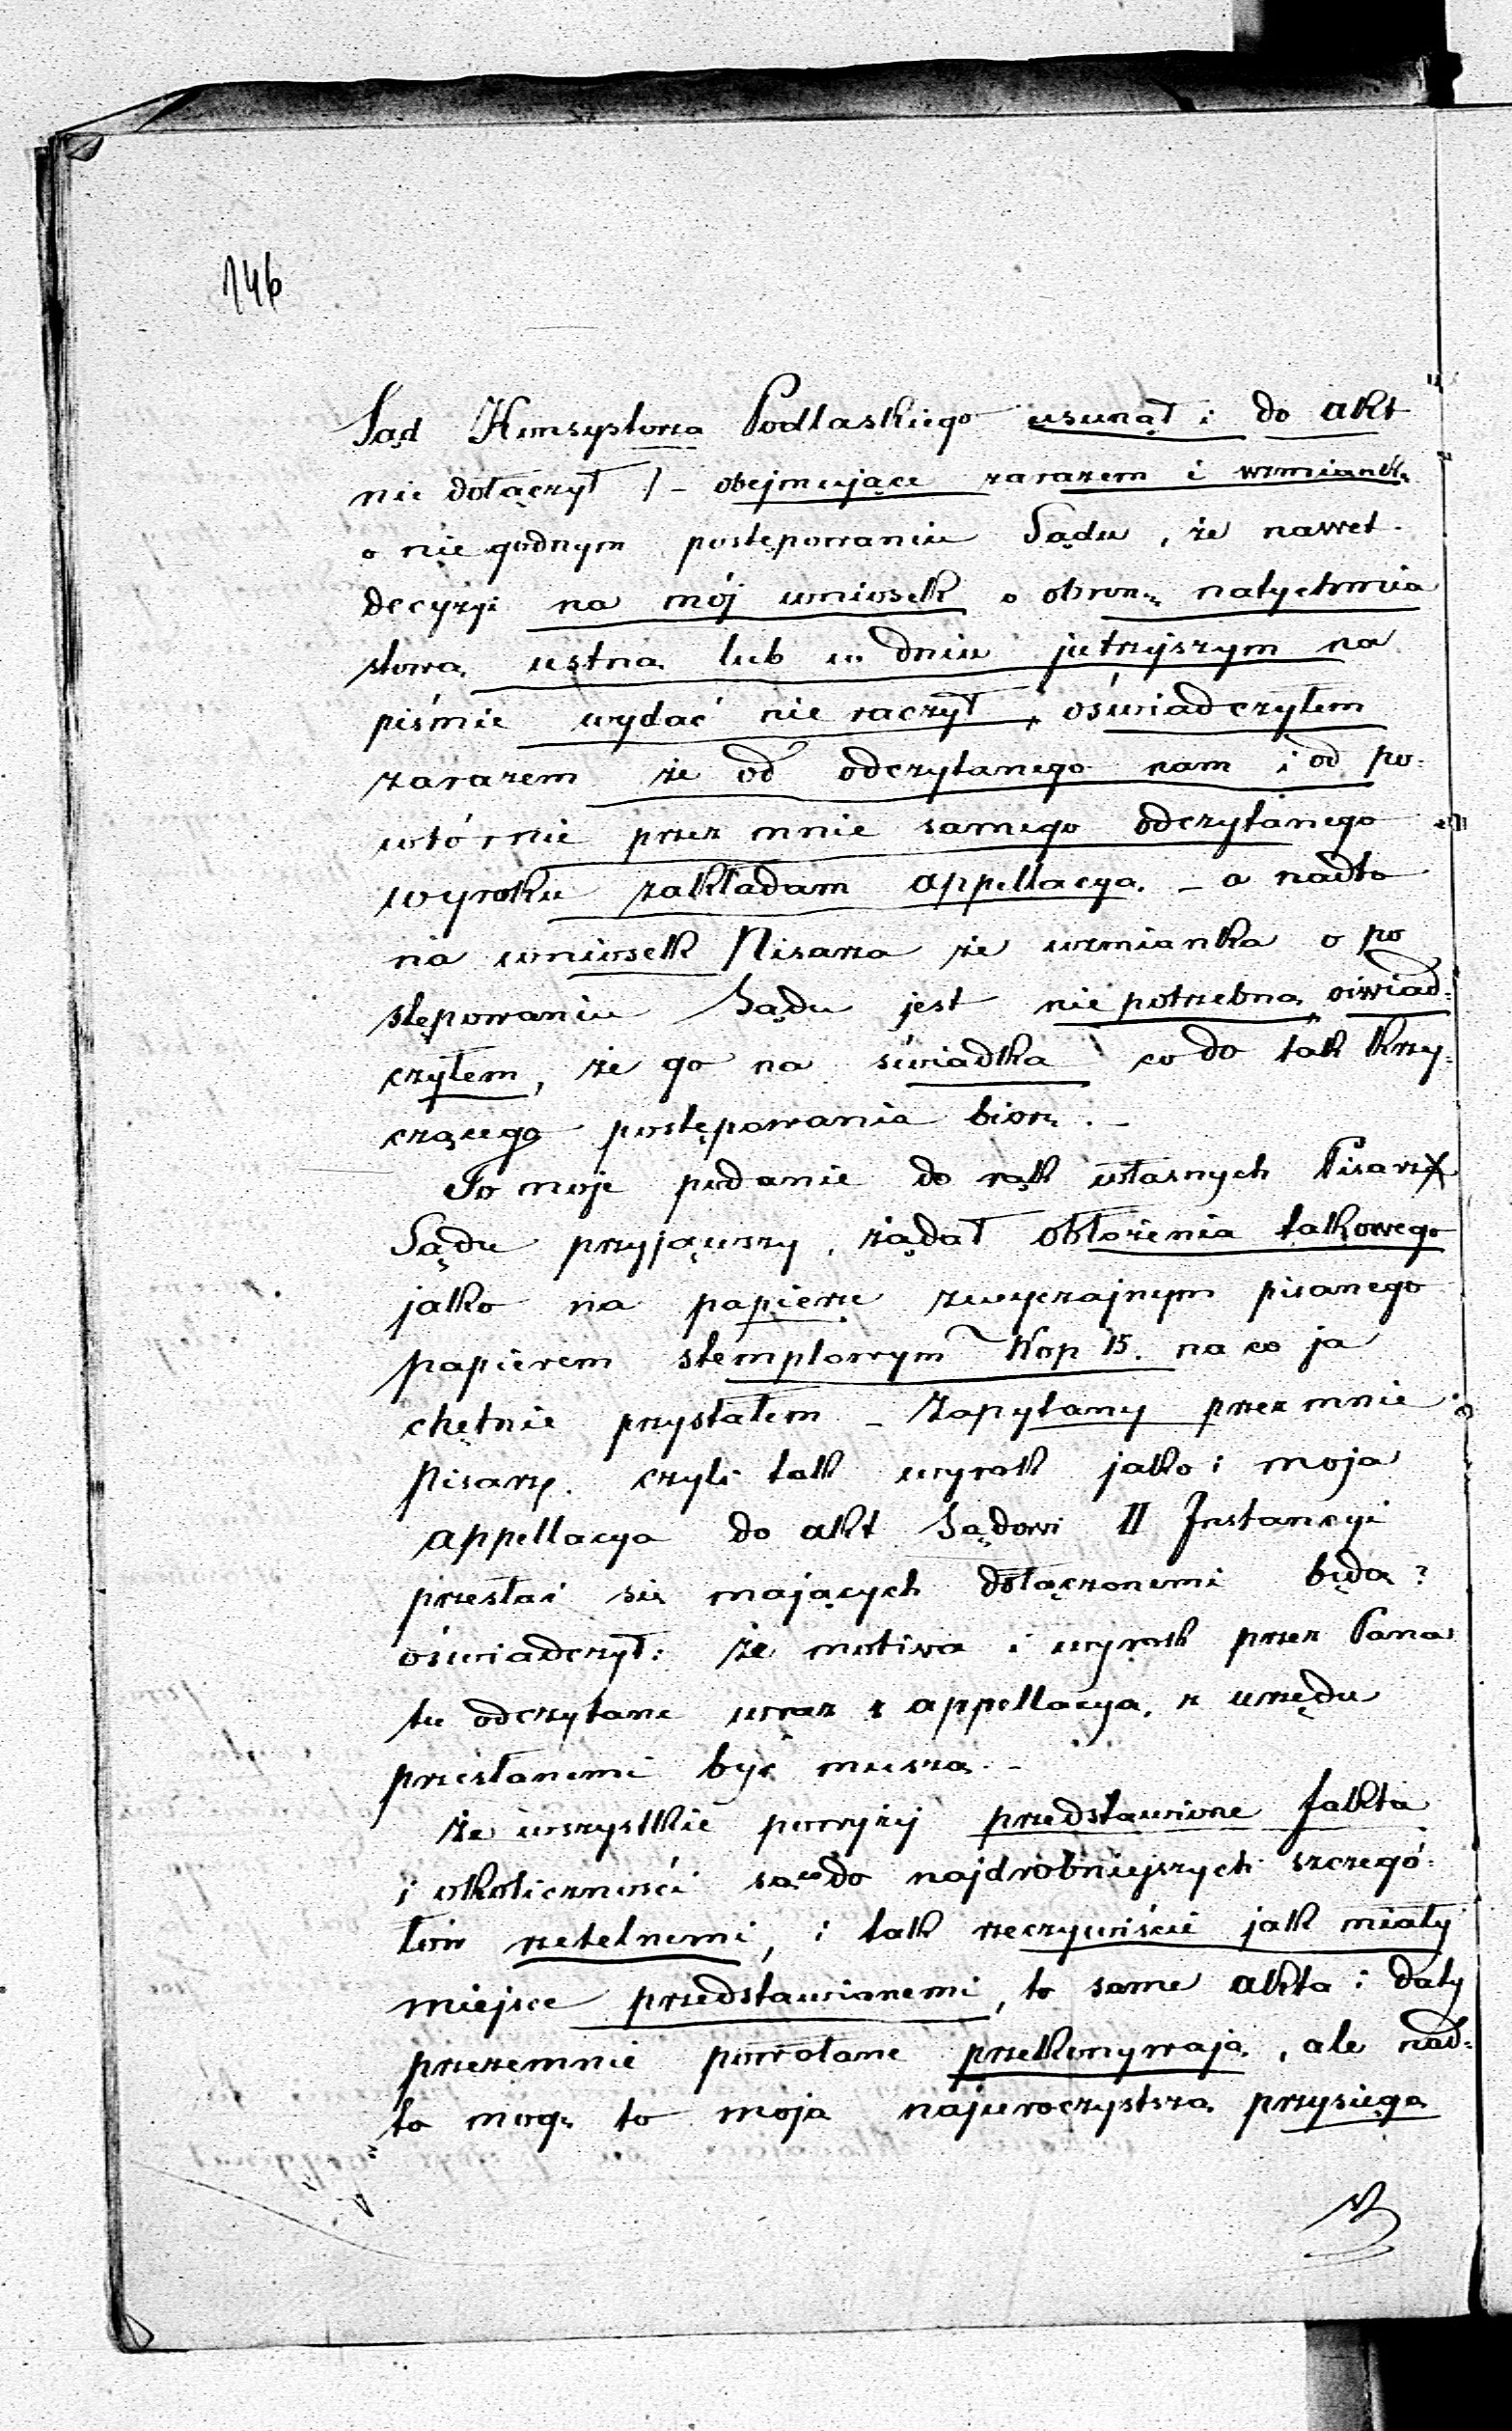 146
Sąd Konsystorza Podlaskiego usunął i do akt
nie dołączył /- obejmujące zarazem i wzmiankę
o nie godnym postępowaniu Sądu, że nawet
decyzyi na mój wniosek o obronę natychmia
stową ustną lub w dniu jutrzyjszym na
piśmie wydać nie raczył, oświadczyłem
zarazem że od odczytanego nam i od po-
wtórnie przez mnie samego odczytanego
wyroku zakładam appellacyą. - a nadto
na wniosek Pisarza że wzmianka o po
stępowaniu Sądu jest nie potrzebną, oświad-
czyłem, że go na świadka co do tak krzy-
czącego postępowania biorę. -
To moje podanie do rąk własnych Pisarz
Sądu przyjąwszy, żądał obłożenia takowego
jako na papierze zwyczajnym pisanego
papierem stemplowym Kop 15. na co ja
chętnie przystałem - Zapytany przez mnie
Pisarz. czyli tak wyrok jako i moja
appellacya do akt Sądowi II Instancyi
przesłać się mających dołączonemi będą?
oświadczył: że motiva i wyrok przez Pana
tu odczytane wraz z appellacyą, z urzędu
przesłanemi być muszą. -
Że wszystkie powyżej przedstawione fakta
i okoliczności są co do najdrobniejszych szczegó-
łów rzetelnemi, i tak rzeczywiście jak miały
miejsce przedstawionemi, to same akta i daty
przezemnie powołane przekonywają, ale nad-
to mogę to moją najuroczystszą przysięgą